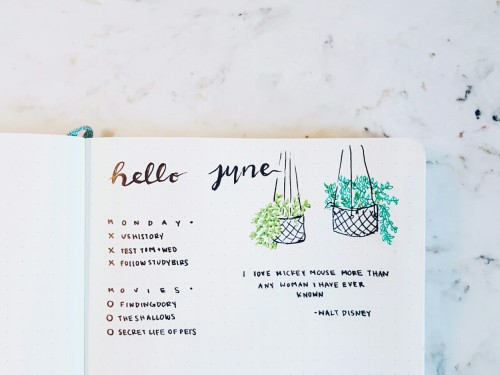 hello june
MONDAY •
X US HISTORY
X TEST TOM + WED
X FOLLOW STUDYBLRS
MOVIES •
O FINDING DORY
O THE SHALLOWS
O SECRET LIFE OF PETS
I LOVE MICKEY MOUSE MORE THAN
ANY WOMAN I HAVE EVER
KNOWN
-WALT DISNEY